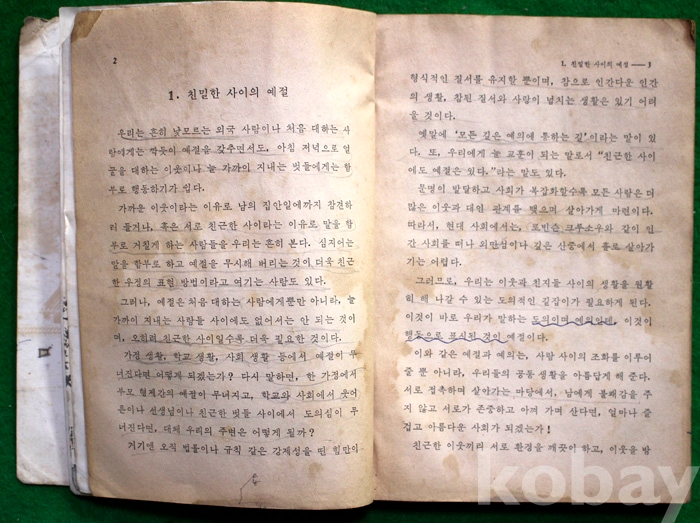 2
1. 친밀한 사이의 예절
우리는 흔히 낯모르는 외국 사람이나 처음 대하는 사
람에게는 깍듯이 예절을 갖추면서도, 아침 저녁으로 얼
굴을 대하는 이웃이나 늘 가까이 지내는 벗들에게는 함
부로 행동하기가 쉽다.
가까운 이웃이라는 이유로 남의 집안일에까지 참견하
려 들거나, 혹은 서로 친근한 사이라는 이유로 말을 함
부로 거칠게 하는 사람들을 우리는 흔히 본다. 심지어는
말을 함부로 하고 예절을 무시해 버리는 것이 더욱 친근
한 우정의 표현 방법이라고 여기는 사람도 있다.
그러나, 예절은 처음 대하는 사람에게뿐만 아니라, 늘
가까이 지내는 사람들 사이에도 없어서는 안 되는 것이
며, 오히려 친근한 사이일수록 더욱 필요한 것이다.
가정 생활, 학교 생활, 사회 생활 등에서 예절이 무
너진다면 어떻게 되겠는가? 다시 말하면, 한 가정에서
부모 형제간의 예절이 무너지고, 학교와 사회에서 웃어
른이나 선생님이나 친근한 벗들 사이에서 도의심이 무
너진다면, 대체 우리의 주변은 어떻게 될까?
거기엔 오직 법률이나 규칙 같은 강제성을 띤 힘만이
1. 친밀한 사이의 예절 — 3
형식적인 질서를 유지할 뿐이며, 참으로 인간다운 인간
의 생활, 참된 질서와 사랑이 넘치는 생활은 있기 어려
울 것이다.
옛말에 ‘모든 길은 예의에 통하는 길’이라는 말이 있
다. 또, 우리에게 늘 교훈이 되는 말로서 “친근한 사이
에도 예절은 있다.”라는 말도 있다.
문명이 발달하고 사회가 복잡화할수록 모든 사람은 더
많은 이웃과 대인 관계를 맺으며 살아가게 마련이다.
따라서, 현대 사회에서는, 로빈슨 크루소우와 같이 인
간 사회를 떠나 외딴섬이나 깊은 산중에서 홀로 살아가
기는 어렵다.
그러므로, 우리는 이웃과 친지들 사이의 생활을 원활
히 해 나갈 수 있는 도의적인 길잡이가 필요하게 된다.
이것이 바로 우리가 말하는 도의이며 예의인데, 이것이
행동으로 표시된 것이 예절이다.
이와 같은 예절과 예의는, 사람 사이의 조화를 이루어
줄 뿐 아니라, 우리들의 공동 생활을 아름답게 해 준다.
서로 접촉하며 살아가는 마당에서, 남에게 불쾌감을 주
지 않고 서로가 존중하고 아껴 가며 산다면, 얼마나 즐
겁고 아름다운 사회가 되겠는가!
친근한 이웃끼리 서로 환경을 깨끗이 하고, 이웃을 방
kobay